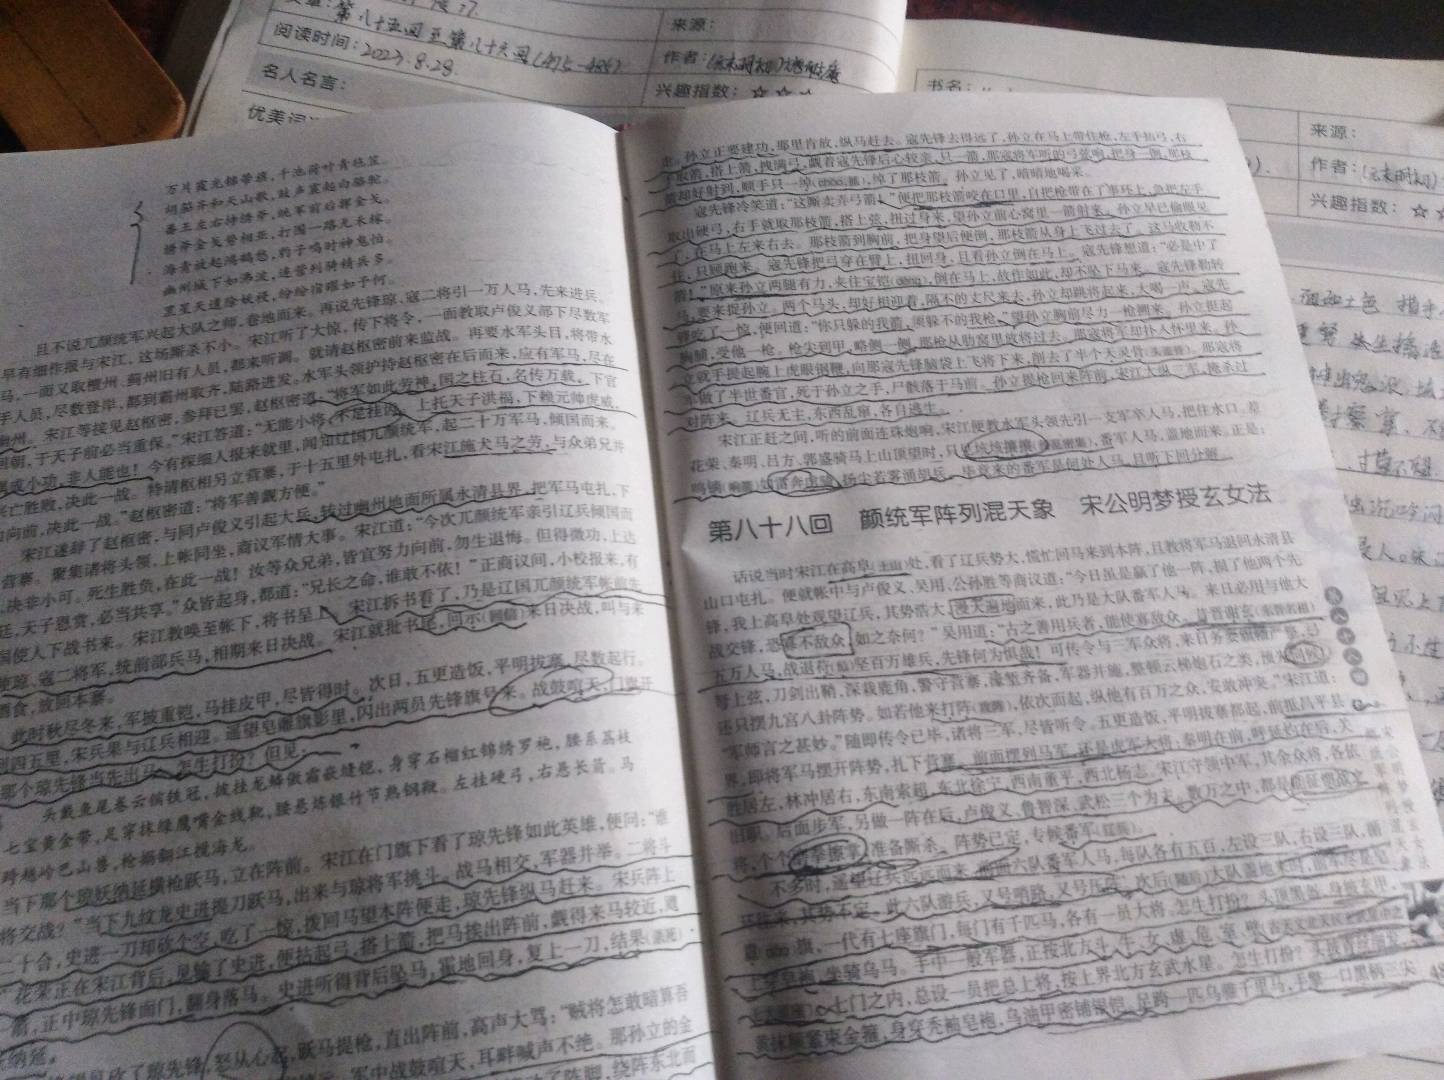 阅读时间：2023.8.28.
名人名言：
来源：
兴趣指数：☆☆
书名：
来源：
兴趣指数：☆
万片霞光锦带旗，千池荷叶青毡笠。
胡笳齐和天山歌，鼓声震起白骆驼。
番王左右持绣斧，统军前后挥金戈。
绣斧金戈势相亚，打围一路无禾稼。
海青放起鸿鹄愁，豹子鸣时神鬼怕。
幽州城下如沸波，连营列骑精兵多。
罡星天遣除妖祲，纷纷宿曜如予何。
且不说兀颜统军兴起大队之师，卷地而来。再说先锋琼、寇二将引一万人马，先来进兵。
早有细作报与宋江，这场厮杀不小。宋江听了大惊，传下将令，一面教取卢俊义部下尽数军
马，一面又取檀州、蓟州旧有人员，都来听调。就请赵枢密前来监战。再要水军头目，将带水
手人员，尽数登岸，都到霸州取齐，陆路进发。水军头领护持赵枢密在后而来，应有军马，尽在
幽州。宋江等接见赵枢密，参拜已罢，赵枢密道：“将军如此劳神，国之柱石，名传万载。下官
回朝，于天子前必当重保。”宋江答道：“无能小将，不足挂齿。上托天子洪福，下赖元帅虎威，
偶成小功，非人能也！今有探细人报来就里，闻知辽国兀颜统军，起二十万军马，倾国而来。
兴亡胜败，决此一战。特请枢相另立营寨，于十五里外屯扎，看宋江施犬马之劳，与众弟兄并
力向前，决此一战。”赵枢密道：“将军善觑方便。”
宋江遂辞了赵枢密，与同卢俊义引起大兵，转过幽州地面所属永清县界，把军马屯扎，下
营寨。聚集诸将头领，上帐同坐，商议军情大事。宋江道：“今次兀颜统军亲引辽兵倾国而
，决非小可。死生胜负，在此一战！汝等众兄弟，皆宜努力向前，勿生退悔。但得微功，上达
廷，天子恩赏，必当共享。”众皆起身，都道：“兄长之命，谁敢不依！”正商议间，小校报来，有
国使人下战书来。宋江教唤至帐下，将书呈上。宋江拆书看了，乃是辽国兀颜统军帐前先
琼、寇二将军，统前部兵马，相期来日决战。宋江就批书尾，回示(回信)来日决战，叫与来
酒食，放回本寨。
此时秋尽冬来，军披重铠，马挂皮甲，尽皆得时。次日，五更造饭，平明拔寨，尽数起行。
到四五里，宋兵果与辽兵相迎。遥望皂雕旗影里，闪出两员先锋旗号来。战鼓喧天，门旗开
那个琼先锋当先出马。怎生打扮？但见：
头戴鱼尾卷云镔铁冠，披挂龙鳞傲霜嵌缝铠，身穿石榴红锦绣罗袍，腰系荔枝
七宝黄金带，足穿抹绿鹰嘴金线靴，腰悬炼银竹节熟钢鞭。左挂硬弓，右悬长箭。马
跨越岭巴山兽，枪搦翻江搅海龙。
当下那个琼妖纳延横枪跃马，立在阵前。宋江在门旗下看了琼先锋如此英雄，便问：“谁
将交战？”当下九纹龙史进提刀跃马，出来与琼将军挑斗。战马相交，军器并举。二将斗
二十合，史进一刀却砍个空，吃了一惊，拨回马望本阵便走，琼先锋纵马赶来。宋兵阵上
花荣正在宋江背后，见输了史进，便拈起弓，搭上箭，把马挨出阵前，觑得来马较近，飕
箭，正中琼先锋面门，翻身落马。史进听得背后坠马，霍地回身，复上一刀，结果(杀死)
妖纳延。
砍了琼先锋，怒从心起，跃马提枪，直出阵前，高声大骂：“贼将怎敢暗算吾
军中战鼓喧天，耳畔喊声不绝。那孙立的金
走。孙立正要建功，那里肯放，纵马赶去。寇先锋去得远了，孙立在马上带住枪，左手拈弓，右
手取箭，搭上箭，拽满弓，觑着寇先锋后心较亲，只一箭，那寇将军听的弓弦响，把身一倒，那枝
箭却好射到，顺手只一绰(chāo,抓)，绰了那枝箭。孙立见了，暗暗地喝采。
寇先锋冷笑道：“这厮卖弄弓箭！”便把那枝箭咬在口里，自把枪带在了事环上，急把左手
取出硬弓，右手就取那枝箭，搭上弦，扭过身来，望孙立前心窝里一箭射来。孙立早已偷眼见
了，在马上左来右去。那枝箭到胸前，把身望后便倒，那枝箭从身上飞过去了。这马收勒不
住，只顾跑来。寇先锋把弓穿在臂上，扭回身，且看孙立倒在马上。寇先锋想道：“必是中了
箭！”原来孙立两腿有力，夹住宝镫(dèng)，倒在马上，故作如此，却不坠下马来。寇先锋勒转
马，要来捉孙立。两个马头，却好相迎着，隔不的丈尺来去，孙立却跳将起来，大喝一声。寇先
锋吃了一惊，便回道：“你只躲的我箭，须躲不的我枪。”望孙立胸前尽力一枪搠来。孙立挺起
胸脯，受他一枪。枪尖到甲，略侧一侧，那枪从肋窝里放将过去。那寇将军却扑入怀里来。孙
立就手提起腕上虎眼钢鞭，向那寇先锋脑袋上飞将下来，削去了半个天灵骨(头盖骨)。那寇将
军做了半世番官，死于孙立之手，尸骸落于马前。孙立提枪回来阵前，宋江大纵三军，掩杀过
对阵来。辽兵无主，东西乱窜，各自逃生。
宋江正赶之间，听的前面连珠炮响，宋江便教水军头领先引一支军卒人马，把住水口。差
花荣、秦明、吕方、郭盛骑马上山顶望时，只见垓垓攘攘(番军密集)，番军人马，盖地而来。正是：
鸣镝(响箭)如雷奔虎骑，扬尘若雾涌胡兵。毕竟来的番军是何处人马，且听下回分解。
第八十八回　颜统军阵列混天象　宋公明梦授玄女法
话说当时宋江在高阜(土山)处，看了辽兵势大，慌忙回马来到本阵，且教将军马退回永清县
山口屯扎。便就帐中与卢俊义、吴用、公孙胜等商议道：“今日虽是赢了他一阵，损了他两个先
锋，我上高阜处观望辽兵，其势浩大，漫天遍地而来，此乃是大队番军人马。来日必用与他大
战交锋，恐寡不敌众，如之奈何？”吴用道：“古之善用兵者，能使寡敌众。昔晋谢玄(东晋名相)
五万人马，战退苻(fú)坚百万雄兵，先锋何为惧哉！可传令与三军众将，来日务要旗幡严整，弓
弩上弦，刀剑出鞘，深栽鹿角，警守营寨，濠堑齐备，军器并施，整顿云梯炮石之类，预先伺候。
还只摆九宫八卦阵势。如若他来打阵(攻阵)，依次而起，纵他有百万之众，安敢冲突。”宋江道：
“军师言之甚妙。”随即传令已毕，诸将三军，尽皆听令。五更造饭，平明拔寨都起，前抵昌平县
界，即将军马摆开阵势，扎下营寨。前面摆列马军，还是虎军大将：秦明在前，呼延灼在后，关
胜居左，林冲居右，东南索超，东北徐宁，西南董平，西北杨志。宋江守领中军，其余众将，各依
旧职。后面步军，另做一阵在后，卢俊义、鲁智深、武松三个为主。数万之中，都是能征惯战之
将，个个磨拳擦掌，准备厮杀。阵势已定，专候番军(辽兵)。
不多时，遥望辽兵远远而来。前面六队番军人马，每队各有五百，左设三队，右设三队，循
环往来，其势不定。此六队游兵，又号哨路，又号压阵。次后(随后)大队盖地来时，前军尽是皂
纛(dào)旗，一代有七座旗门，每门有千匹马，各有一员大将。怎生打扮？头顶黑盔，身披玄甲，
上穿皂袍，坐骑乌马。手中一般军器，正按北方斗、牛、女、虚、危、室、壁
七门之内，总设一员把总上将，按上界北方玄武水星。怎生打扮？头披青丝细发，
黄抹额紧束金箍，身穿秃袖皂袍，乌油甲密铺银铠，足跨一匹乌骓千里马，手擎一口黑柄三尖
第八十八回